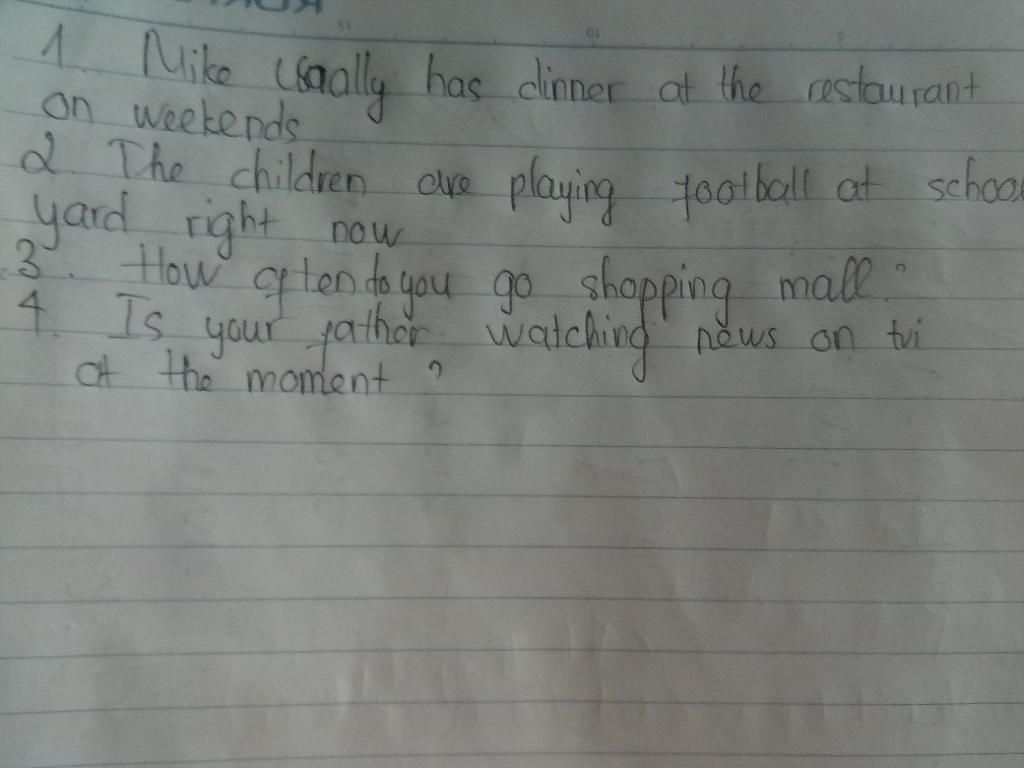 1. Mike usually has dinner at the restaurant
on weekends
2. The children are playing football at school
yard right now
3. How often to you go shopping mall?
4. Is your father watching news on tvi
at the moment?